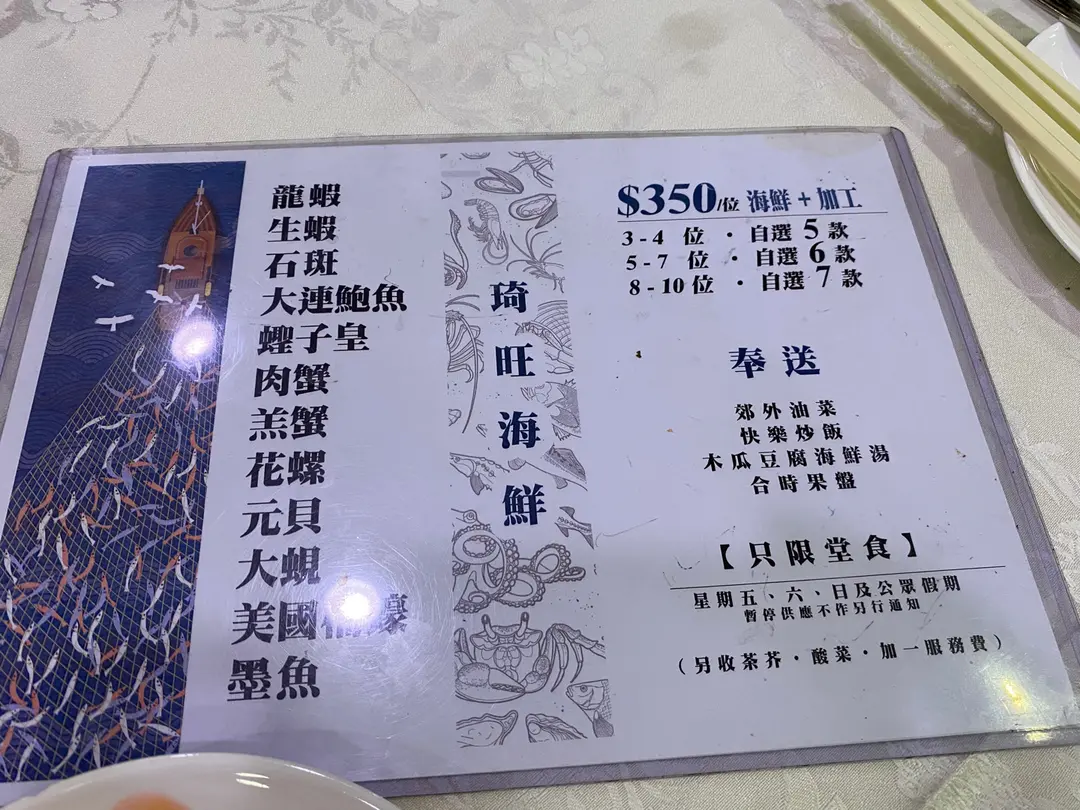 龍蝦
生蝦
石斑
大連鮑魚
蟶子皇
肉蟹
羔蟹
花螺
元貝
大蜆
美國
墨魚
琦旺海鮮
$350/位 海鮮+加工
3-4 位 · 自選 5 款
5-7 位 · 自選 6 款
8-10 位 · 自選 7 款
奉送
郊外油菜
快樂炒飯
木瓜豆腐海鮮湯
合時果盤
【只限堂食】
星期五、六、日及公眾假期
暫停供應不作另行通知
(另收茶芥·酸菜·加一服務費)